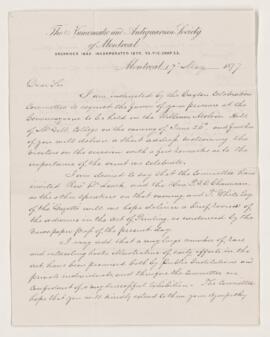 The Numismatic and Antiquarian Society
of Montreal
Montreal 17 May 1877
Dear Sir
I am instructed by the Caxton Celebration
Committee to request the favor of your presence at the
Conversazione to be held in the William Molson Hall
of McGill College on the evening of June 26th and
you will deliver a short address
visitors on the occasion with a few remarks as to the
importance of the event we celebrate.
I am desired to say that the Committee have
invited Revd Dr and the Hon P. J. O. Chauveau
as the other speakers on that evening and Mr White Esq
of the Gazette will we hope deliver a brief review of
the advance in the Art of Printing, as evidenced by the
Newspaper Press of the present day
I may add that a very large number of rare and
interesting books illustrative of early efforts in the
art have been promised both by Public Institutions and
private individuals and the Committee are
confident of a very successful exhibition. The Committee
hope that you will kindly extend to them your sympathy